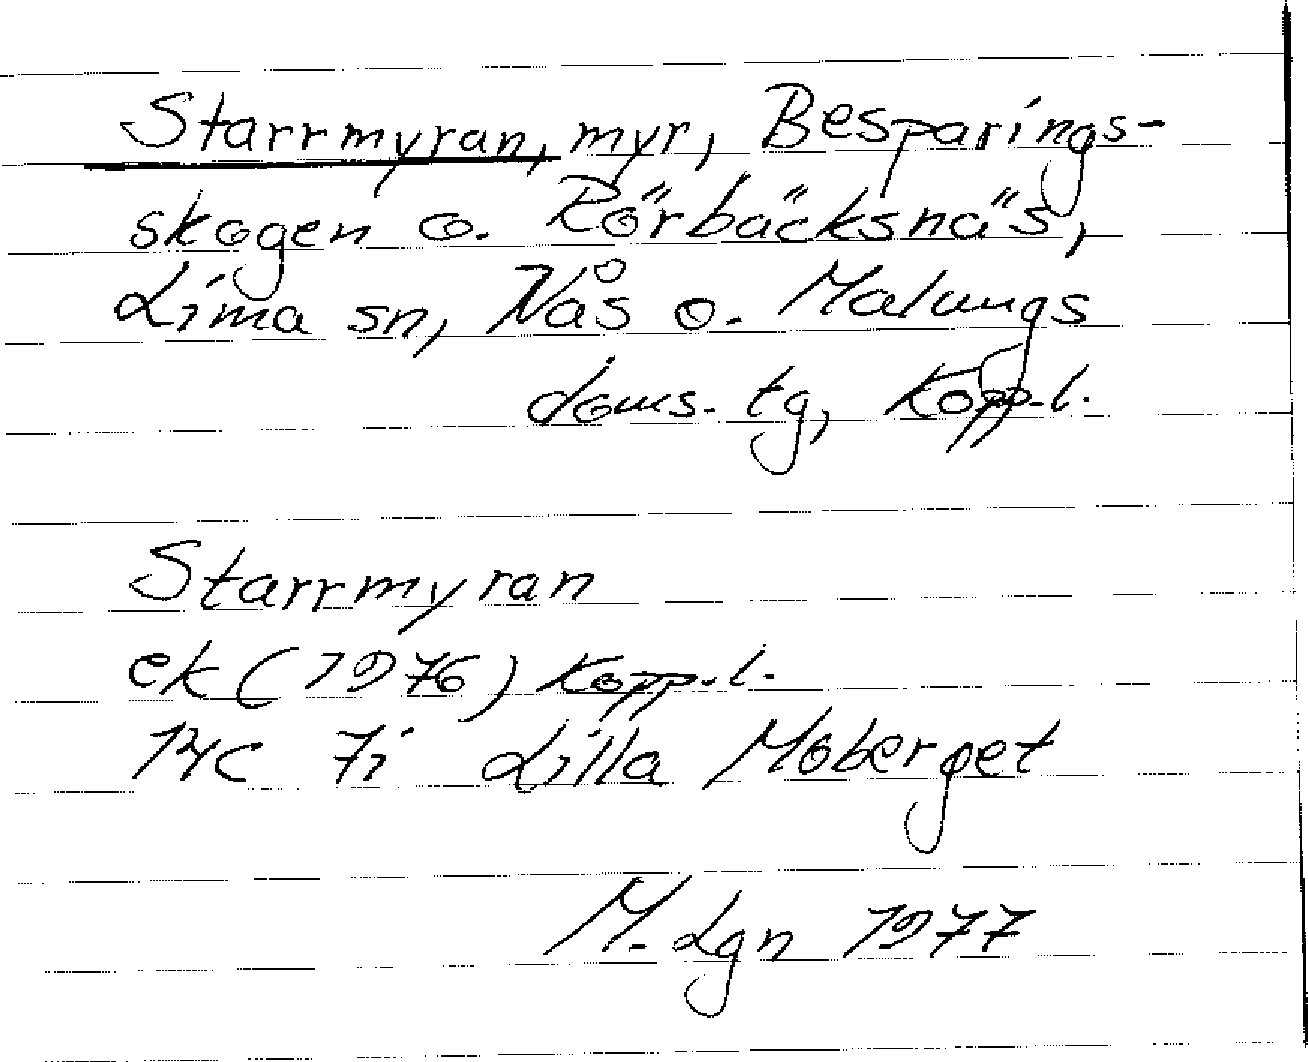 Starrmyran, myr, Besparings-
skogen o. Rörbäcksnäs,
Lima sn, Nås o. Malungs
doms. tg, Kopp. l.
Starrmyran
ek (1976) Kopp. l.
14c 7i Lilla Moberget
M. Lgn 1977